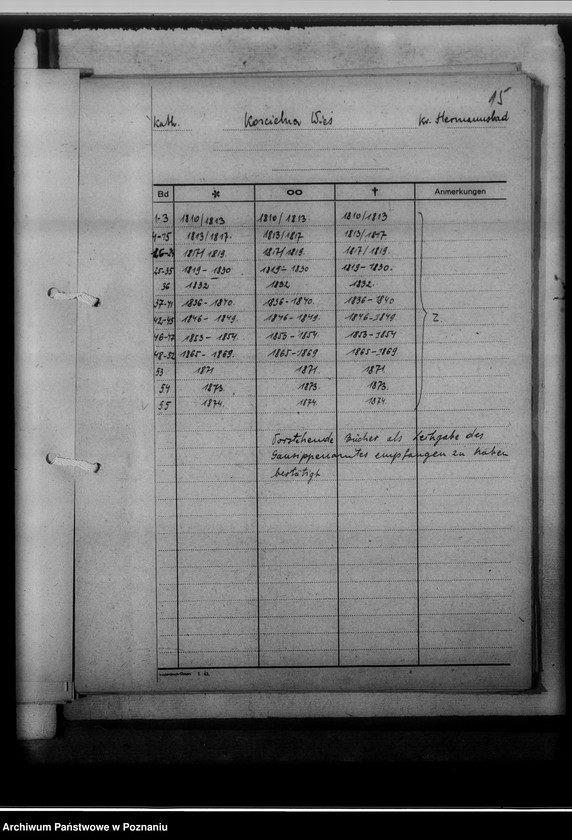 15
kath. Koscielna Wies Kr. Hermannsbad
Bd * ∞ † Anmerkungen
1-3 1810/1813 1810/1813. 1810/1813
4-15 1813/1817. 1813/1817 1813/1817.
16-24 1817/1819. 1817/1819. 1817/1819.
25-35 1819-1830 1819-1830 1819-1830.
36 1832 1832 1832.
37-41 1836-1840. 1836-1840. 1836-1840
42-45 1846-1849. 1846-1849. 1846-1849.
46-47 1853-1854. 1853-1854. 1853-1854
48-52 1865-1869. 1865-1869 1865-1869
53 1871 1871. 1871.
54 1873. 1873. 1873.
55 1874. 1874. 1874.
Z.
Vorstehende Bücher als Leihgabe des
Gausippenamtes empfangen zu haben
bestätigt
Archiwum Państwowe w Poznaniu